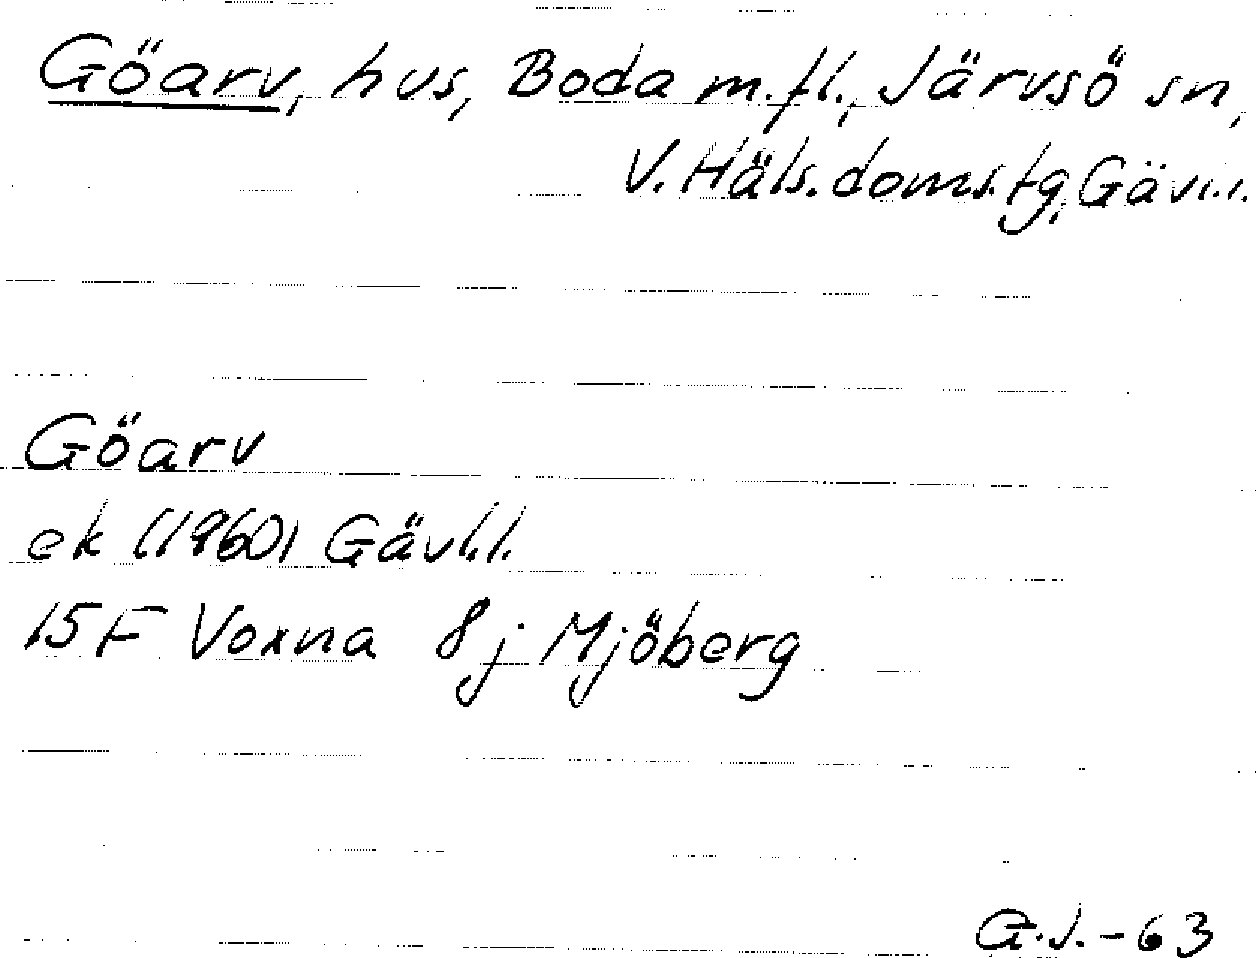 Göarv, hus, Boda m.fl., Järvsö sn,
V. Häls. doms. tg, Gävl.l.
Göarv
ek (1960) Gävl.l.
15F Voxna 8j Mjöberg
G.J.-63